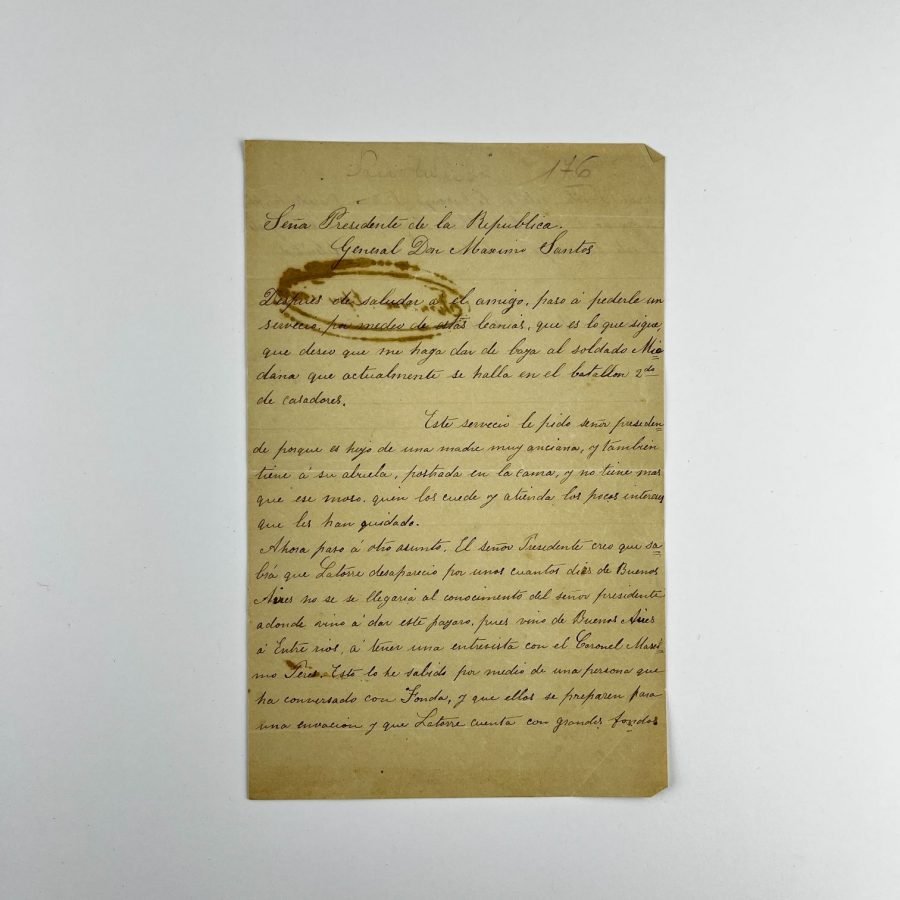 176
Seña Presidente de la Republica.
General Don Maximo Santos
Despues de saludar á el amigo, paso á pederle un
servecio, por medio de estas leanias, que es lo que sigue,
que deseo que me haga dar de baja al soldado Mie
dana que actualmente se halla en el batallon 2do
de casadores.
Este servecio le pido señor presiden
de porque es hijo de una madre muy anciana, y tambien
tiene á su abuela, postrada en la cama, y no tiene mas
que ese moso, quien los cuede y atienda los pocos interese
que les han quidado.
Ahora paso á otro asunto. El señor Presidente creo que sa
brá que Latorre desaparecio por unos cuantos dies de Buenos
Aires no se se llegaria al conocimento del señor presidente
adonde vino á dar este pajaro, pues vino de Buenos Aires
á Entre rios, á tener una entrevista con el Coronel Maxi
mo Peres. Esto lo he sabido por medio de una persona que
ha conversado con Fonda, y que ellos se preparen para
una envacion y que Latorre cuenta con grandes fondos